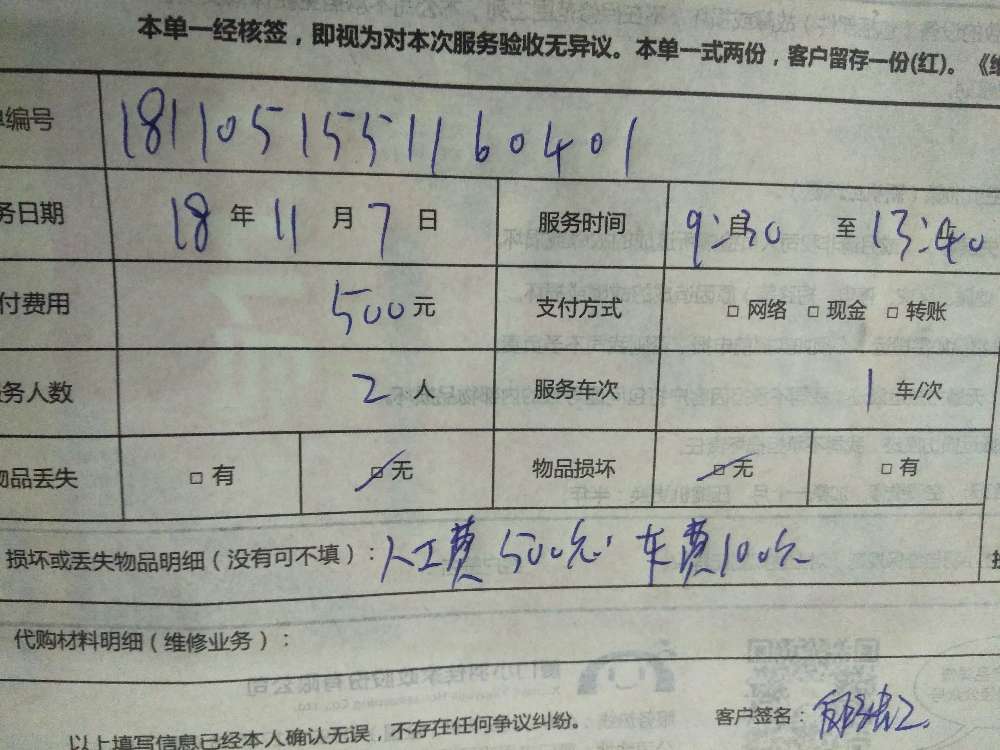 本单一经核签，即视为对本次服务验收无异议。本单一式两份，客户留存一份(红)。《
单编号 18110515551160401
务日期 18年11月7日 服务时间 9:30 自 至 13:40
付费用 500元 支付方式 □ 网络 □ 现金 □ 转账
服务人数 2人 服务车次 1车/次
物品丢失 □ 有 □ 无 物品损坏 □ 无 □ 有
损坏或丢失物品明细（没有可不填）：人工费500元. 车费100元
代购材料明细（维修业务）：
以上填写信息已经本人确认无误，不存在任何争议纠纷。 客户签名：